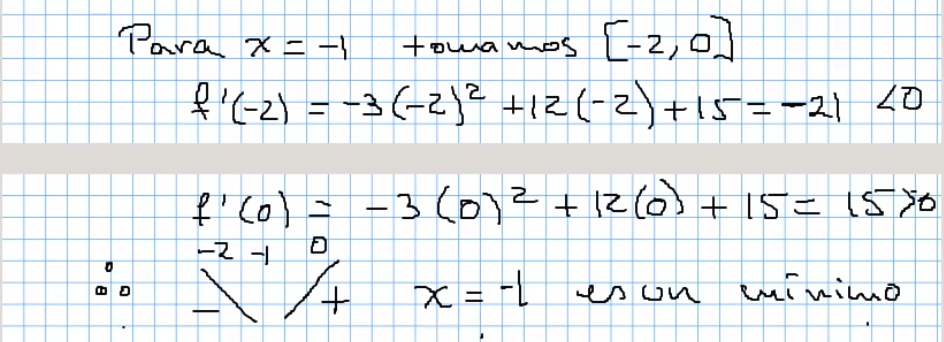 Para x = -1 tomamos [-2, 0]
f'(-2) = -3(-2)² + 12(-2) + 15 = -21 <0
f'(0) = -3(0)² + 12(0) + 15 = 15 >0
-2 -1 0
∴ - + x = -1 es un mínimo